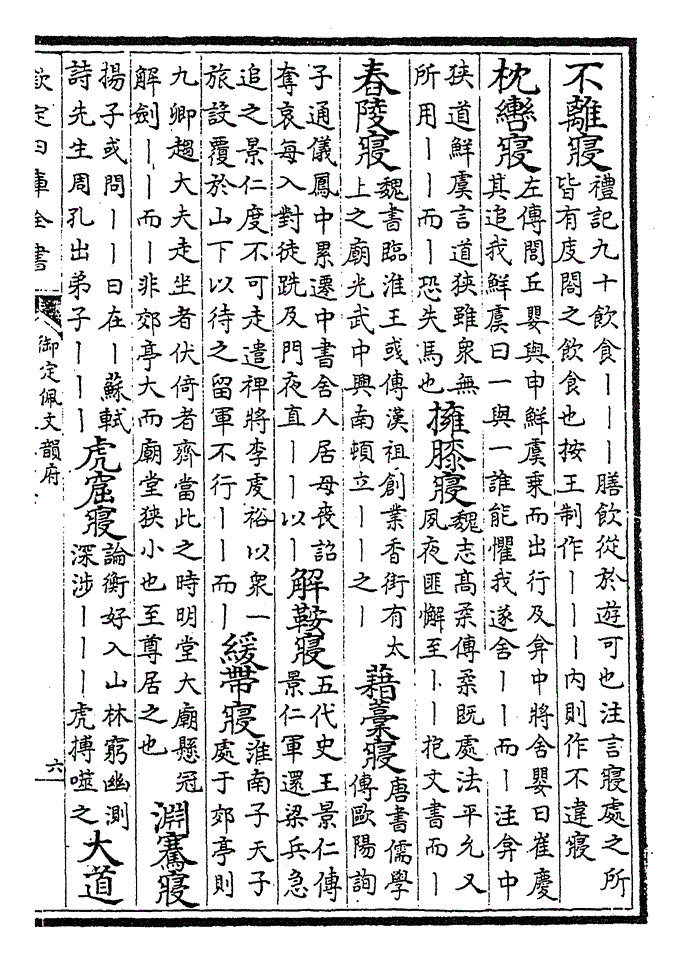 不離寢
禮記九十飲食丨丨丨膳飲從於遊可也注言寢處之所
皆有庋閣之飲食也按王制作丨丨丨内則作不違寢
枕轡寢
左傳閭丘嬰與申鮮虞乗而出行及弇中將舍嬰曰崔慶
其追我鮮虞曰一與一誰能懼我遂舍丨丨而丨注弇中
狹道鮮虞言道狹雖衆無
所用丨丨而丨恐失馬也
擁膝寢
魏志髙柔傳柔既處法平允又
夙夜匪懈至丨丨抱文書而丨
春陵寢
魏書臨淮王彧傳漢祖創業香街有太
上之廟光武中興南頓立丨丨之丨
藉藁寢
唐書儒學
傳歐陽詢
子通儀鳳中累遷中書舍人居母喪詔
奪哀每入對徒跣及門夜直丨丨以丨
解鞍寢
五代史王景仁傳
景仁軍還梁兵急
追之景仁度不可走遣裨將李虔裕以衆一
旅設覆於山下以待之留軍不行丨丨而丨
緩帶寢
淮南子天子
處于郊亭則
九卿趨大夫走坐者伏倚者齊當此之時明堂大廟懸冠
解劍丨丨而丨非郊亭大而廟堂狹小也至尊居之也
淵騫寢
揚子或問丨丨曰在丨蘇軾
詩先生周孔出弟子丨丨丨
虎窟寢
論衡好入山林窮幽測
深涉丨丨丨虎搏噬之
大道
欽定四庫全書
御定佩文韻府
六